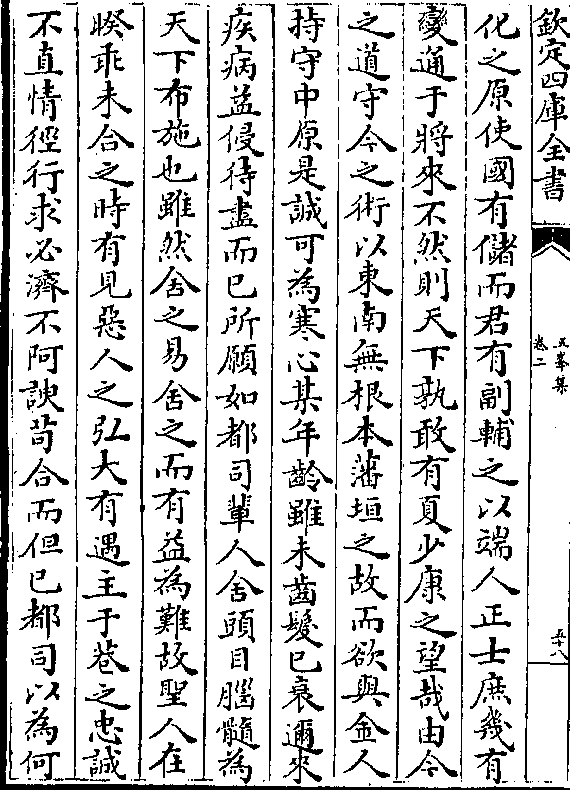 欽定四庫全書
五峯集
卷二
五十八
化之原使國有儲而君有副輔之以端人正士庶幾有
變通于將來不然則天下孰敢有夏少康之望哉由今
之道守今之術以東南無根本藩垣之故而欲與金人
持守中原是誠可為寒心某年齡雖未齒髮已衰邇來
疾病益侵待盡而已所願如都司輩人舍頭目腦髓為
天下布施也雖然舍之易舍之而有益為難故聖人在
睽乖未合之時有見惡人之弘大有遇主于巷之忠誠
不直情徑行求必濟不阿諛苟合而但已都司以為何